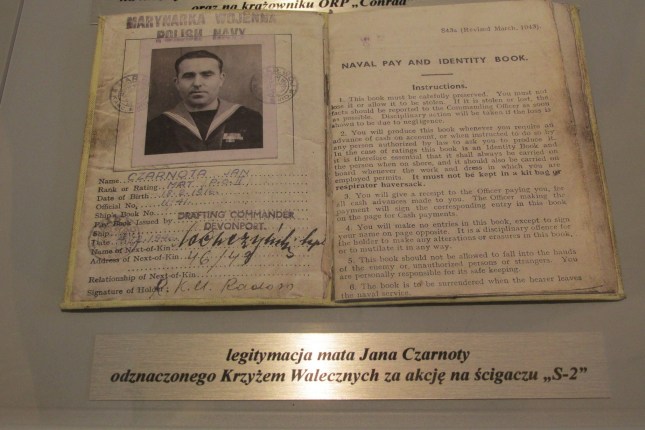 oraz na krążowniku ORP „Conrad”
MARYNARKA WOJENNA
POLISH NAVY
Name CZARNOTA JAN
Rank or Rating MAT
Date of Birth
Official No.
Ship's Book No.
Pay Book Issued by
DRAFTING COMMANDER
DEVONPORT.
Ship
Date
Name of Next-of-Kin
Address of Next-of-Kin 46/48
Relationship of Next-of-Kin
Signature of Holder R.K.U. Radom
543a (Revised March, 1943)
NAVAL PAY AND IDENTITY BOOK.
Instructions.
1. This book must be carefully preserved. You must not
lose it or allow it to be stolen. If it is stolen or lost, the
facts should be reported to the Commanding Officer as soon
as possible. Disciplinary action will be taken if the loss is
shown to be due to negligence.
2. You will produce this book whenever you require an
advance of cash on account, or when instructed to do so by
any person authorised by law to ask you to produce it.
In the case of ratings this book is an Identity Book and
it is therefore essential that it shall always be carried on
the person when on shore, and it should also be carried on
board whenever the work and dress in which you are
employed permits. It must not be kept in a kit bag or
respirator haversack.
3. You will give a receipt to the Officer paying you, for
all cash advances made to you. The Officer making the
payment will sign the corresponding entry in this book
on the page for Cash payments.
4. You will make no entries in this book, except to sign
your name on page opposite. It is a disciplinary offence for
the holder to make any alterations or erasures in this book, or
to mutilate it in any way.
5. This book should not be allowed to fall into the hands
of the enemy, or unauthorised persons or strangers. You
are personally responsible for its safe keeping.
6. The book is to be surrendered when the bearer leaves
the naval service.
legitymacja mata Jana Czarnoty
odznaczonego Krzyżem Walecznych za akcję na ścigaczu „S-2”